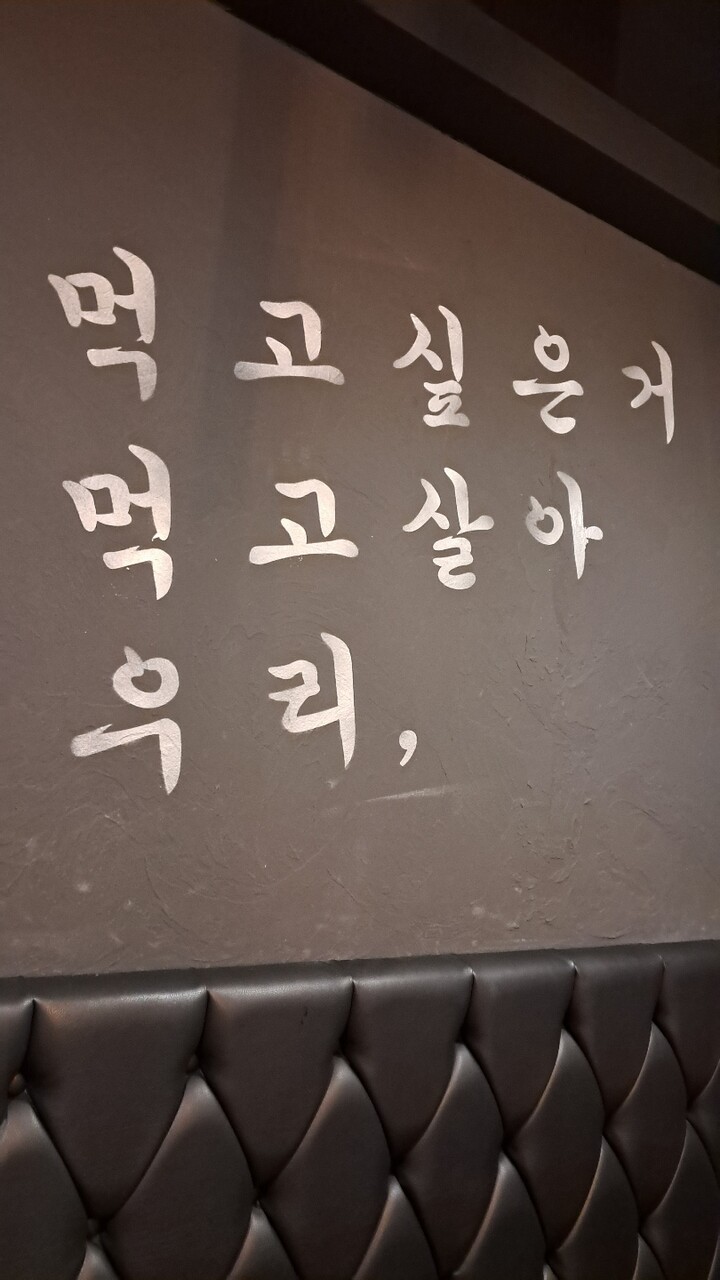 먹고싶은거
먹고살아
우리,